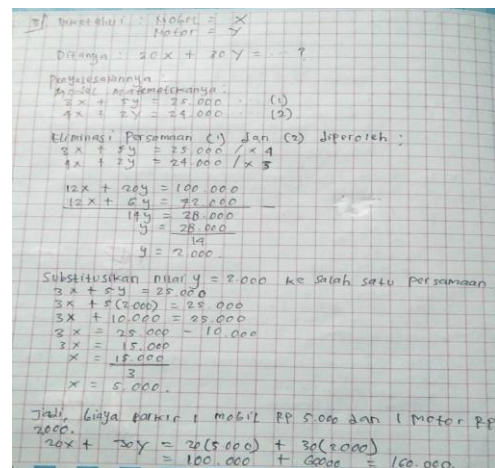 3) Diketahui : Mobil = X
Motor = Y
Ditanya : 20x + 30Y = ... ?
Penyelesaiannya :
Model matematikanya :
3x + 5y = 25.000 (1)
4x + 2y = 24.000 (2)
Eliminasi Persamaan (1) dan (2) diperoleh :
3x + 5y = 25.000 / x 4
4x + 2y = 24.000 / x 3
12x + 20y = 100.000
12x + 6y = 72.000 -
14y = 28.000
y = 28.000
14
y = 2.000
Substitusikan nilai y = 2.000 ke salah satu persamaan
3x + 5y = 25.000
3x + 5(2.000) = 25.000
3x + 10.000 = 25.000
3x = 25.000 - 10.000
3x = 15.000
x = 15.000
3
x = 5.000.
Jadi, biaya parkir 1 mobil RP 5.000 dan 1 Motor RP
2000.
20x + 30Y = 20(5.000) + 30(2000)
= 100.000 + 60000 = 160.000.